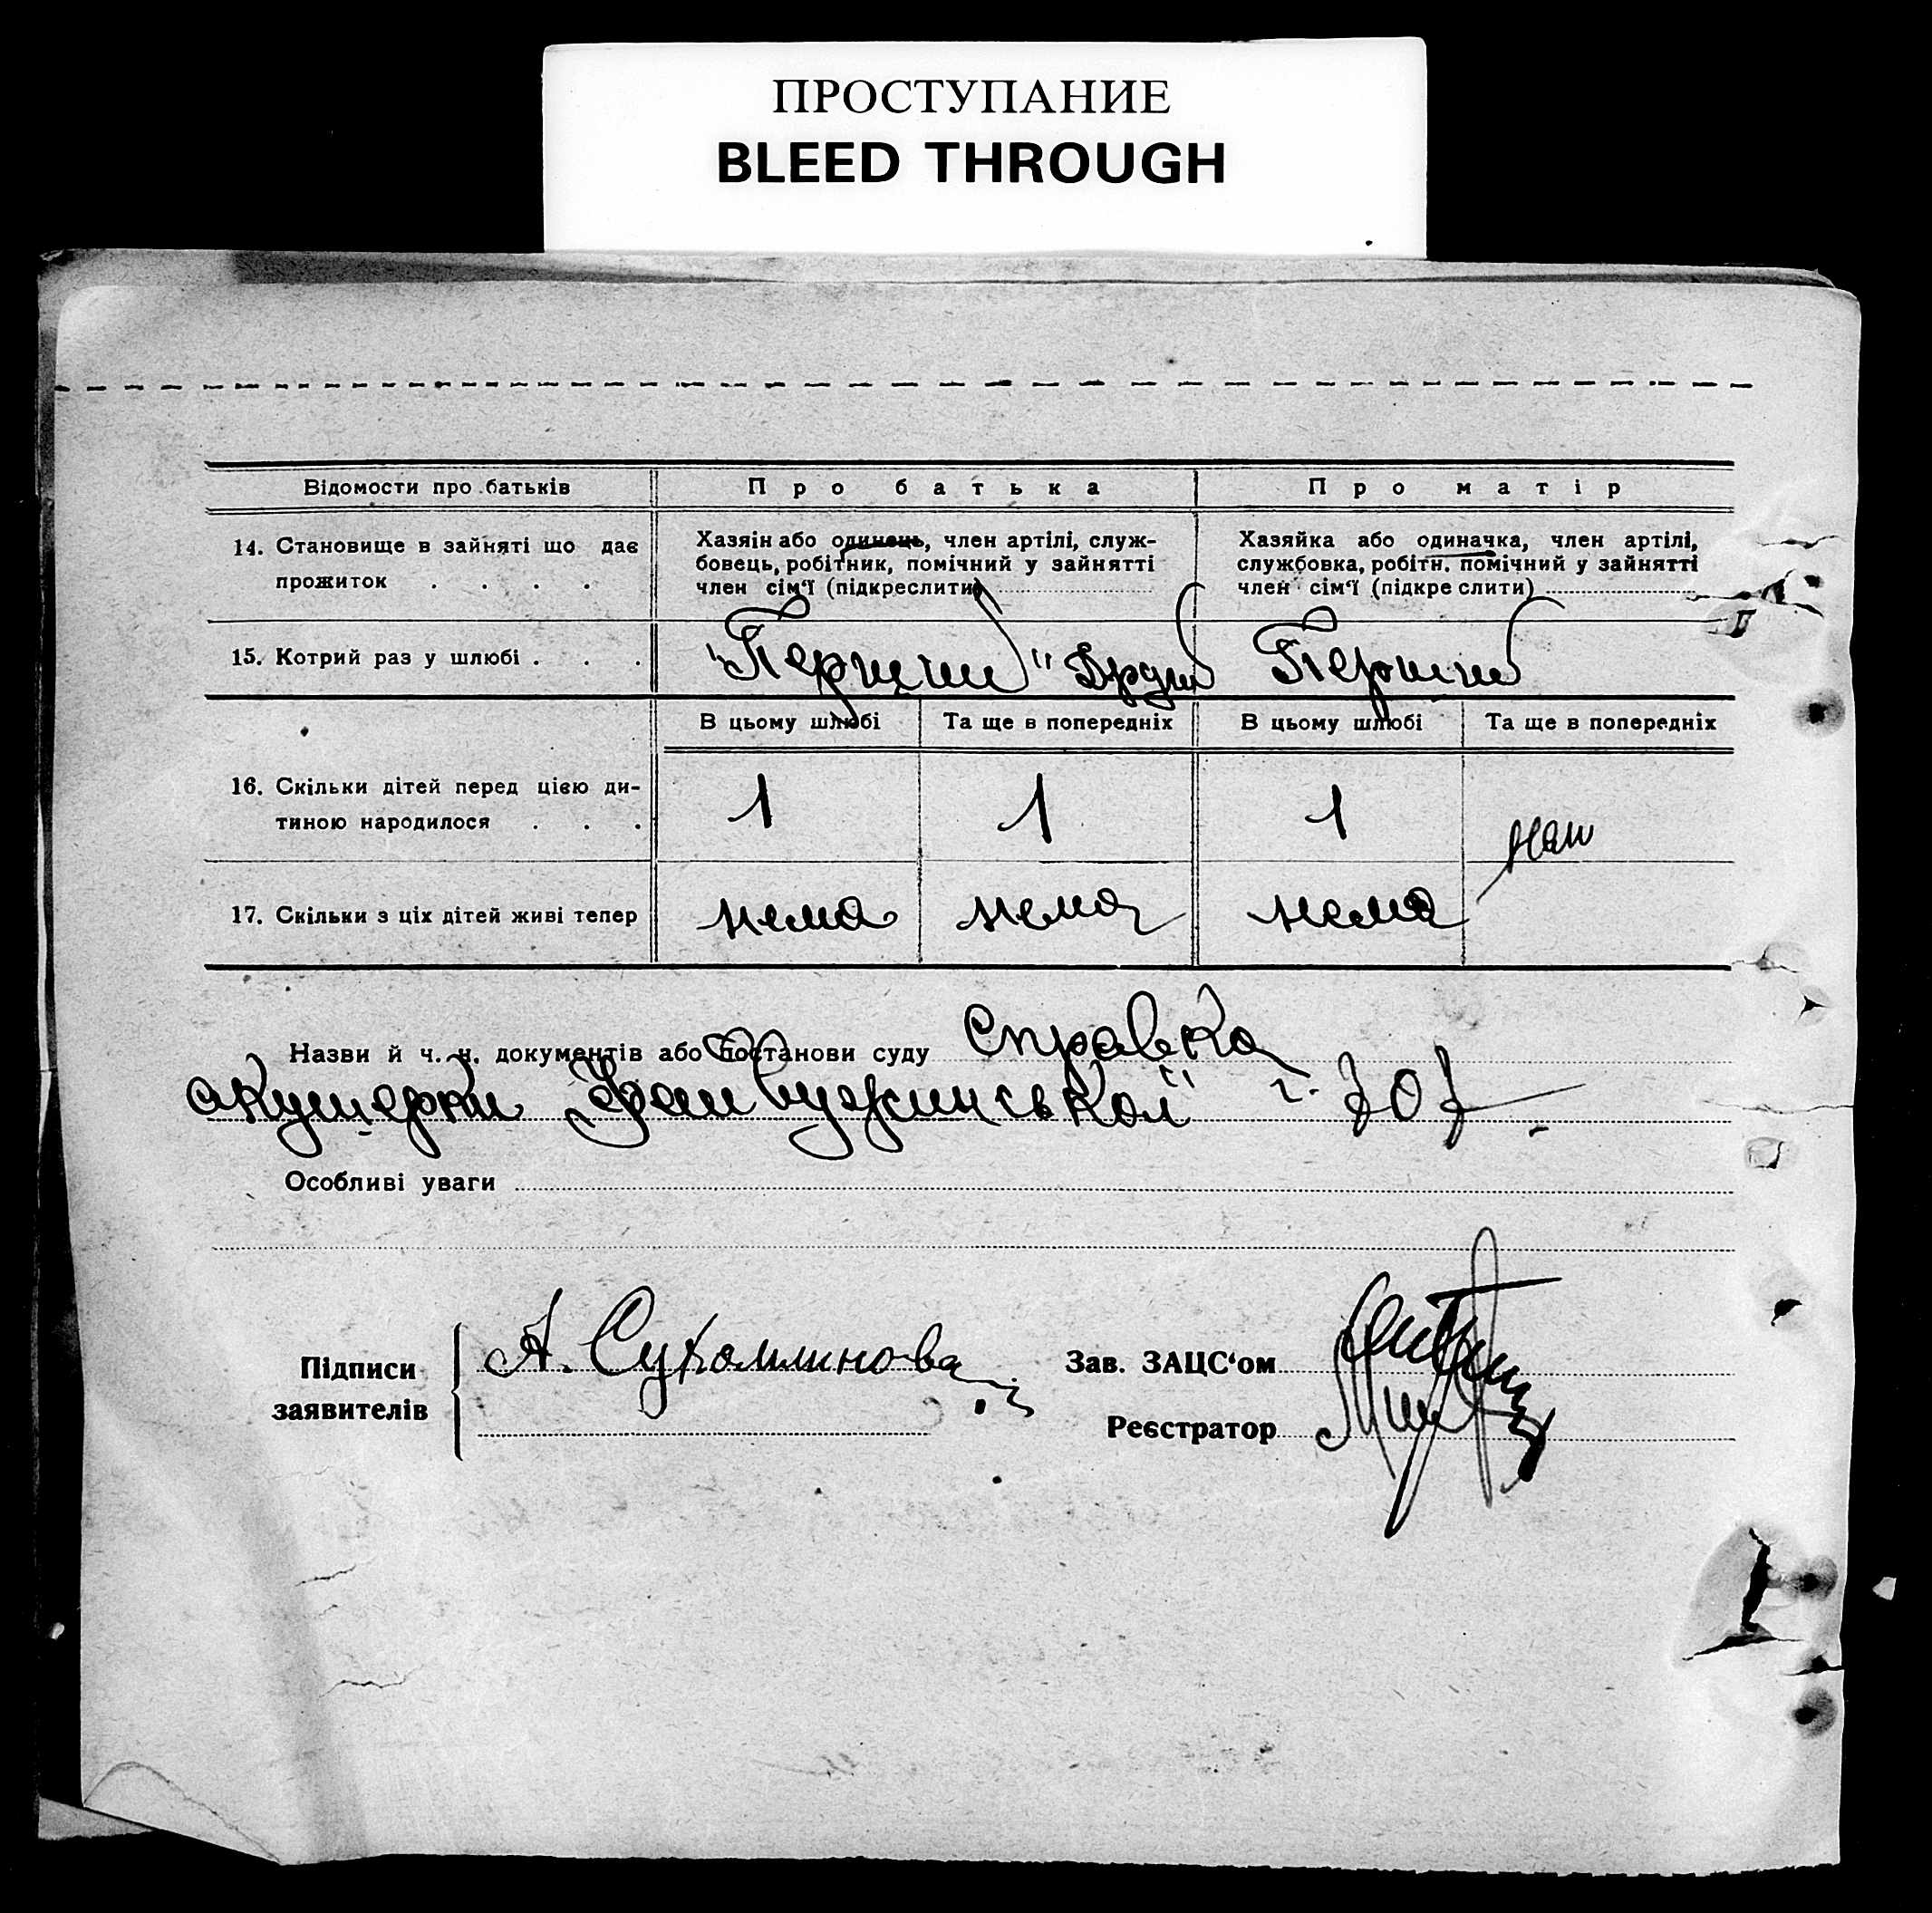 ПРОСТУПАНИЕ
BLEED THROUGH
Відомости про батьків
Про батька
Про матір
14. Становище в зайняті що дає
прожиток . . . .
Хазяін або одинець, член артілі, служ-
бовець, робітник, помічний у зайнятті
член сім'ї (підкреслити)
Хазяйка або одиначка, член артілі,
службовка, робітн. помічний у зайнятті
член сім'ї (підкре слити)
15. Котрий раз у шлюбі . . .
"Перший" Другий
Перший
В цьому шлюбі
Та ще в попередніх
В цьому шлюбі
Та ще в попередніх
16. Скільки дітей перед цією ди-
тиною народилося . . .
1
1
1
17. Скільки з ціх дітей живі тепер
нема
нема
нема
Назви й ч. ч. документів або постанови суду Справка
акушерки
Особливі уваги
Підписи
заявителів
А. Сухомлинова
Зав. ЗАЦС'ом
Реєстратор